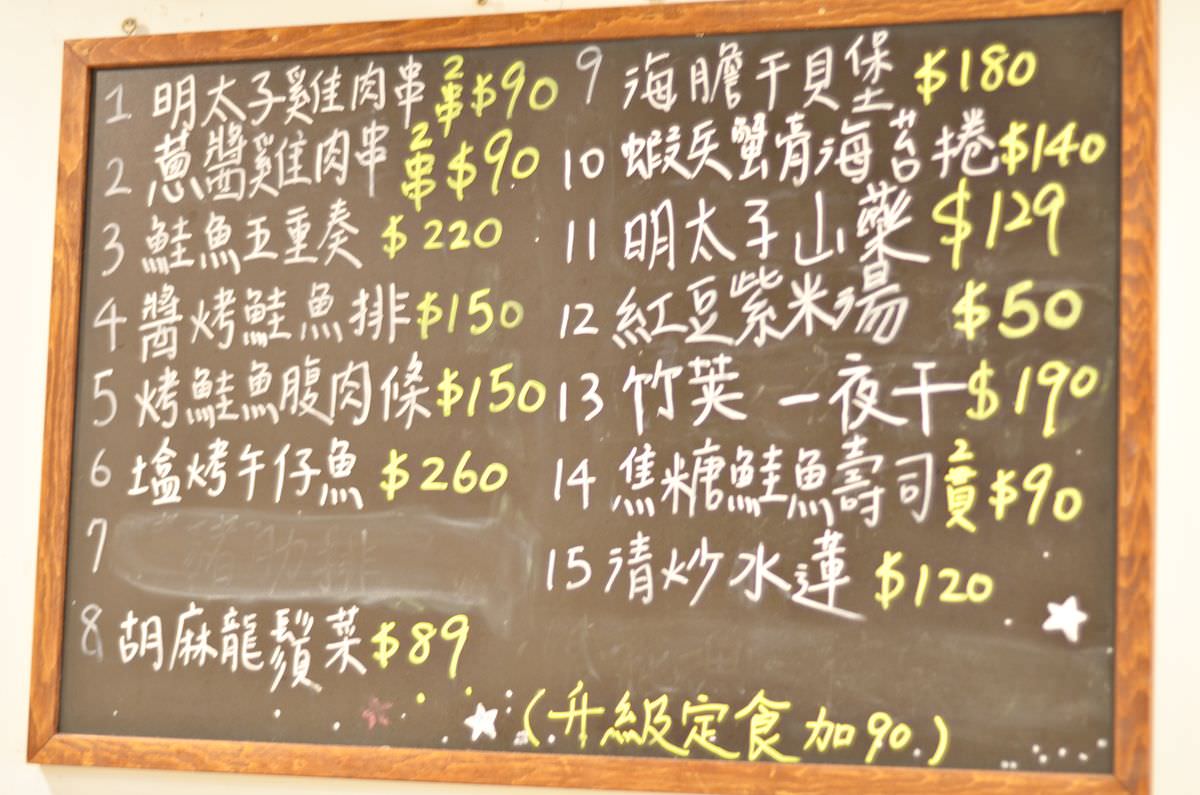 1 明太子雞肉串 2串 $90
2 蔥醬雞肉串 2串 $90
3 鮭魚五重奏 $220
4 醬烤鮭魚排 $150
5 烤鮭魚腹肉條 $150
6 塩烤午仔魚 $260
7
8 胡麻龍鬚菜 $89
9 海膽干貝堡 $180
10 蝦夷蟹膏海苔捲 $140
11 明太子山藥 $129
12 紅豆紫米湯 $50
13 竹莢一夜干 $190
14 焦糖鮭魚壽司 2貫 $90
15 清炒水蓮 $120
(升級定食加90.)